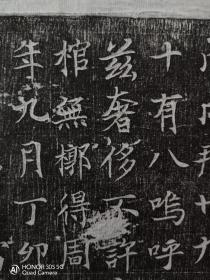 十有八嗚呼
茲奢侈不許
棺無槨得周
年九月丁卯
HONOR 30S 5G
Quad Camera